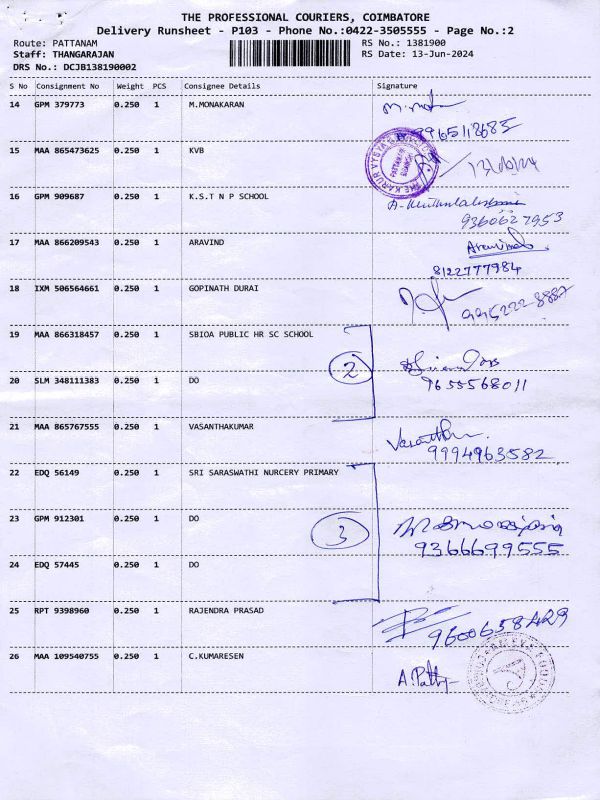 THE PROFESSIONAL COURIERS, COIMBATORE
Delivery Runsheet - P103 - Phone No.:0422-3505555 - Page No.:2
Route: PATTANAM RS No.: 1381900
Staff: THANGARAJAN RS Date: 13-Jun-2024
DRS No.: DCJB138190002
S No Consignment No Weight PCS Consignee Details Signature
14 GPM 379773 0.250 1 M.MONAKARAN
15 MAA 865473625 0.250 1 KVB
16 GPM 909687 0.250 1 K.S.T N P SCHOOL
9360627953
17 MAA 866209543 0.250 1 ARAVIND Aravind
8122777984
18 IXM 506564661 0.250 1 GOPINATH DURAI
19 MAA 866318457 0.250 1 SBIOA PUBLIC HR SC SCHOOL
2
20 SLM 348111383 0.250 1 DO 9655568011
21 MAA 865767555 0.250 1 VASANTHAKUMAR
9994963582
22 EDQ 56149 0.250 1 SRI SARASWATHI NURCERY PRIMARY
23 GPM 912301 0.250 1 DO
3
9366699555
24 EDQ 57445 0.250 1 DO
25 RPT 9398960 0.250 1 RAJENDRA PRASAD
26 MAA 109540755 0.250 1 C.KUMARESEN